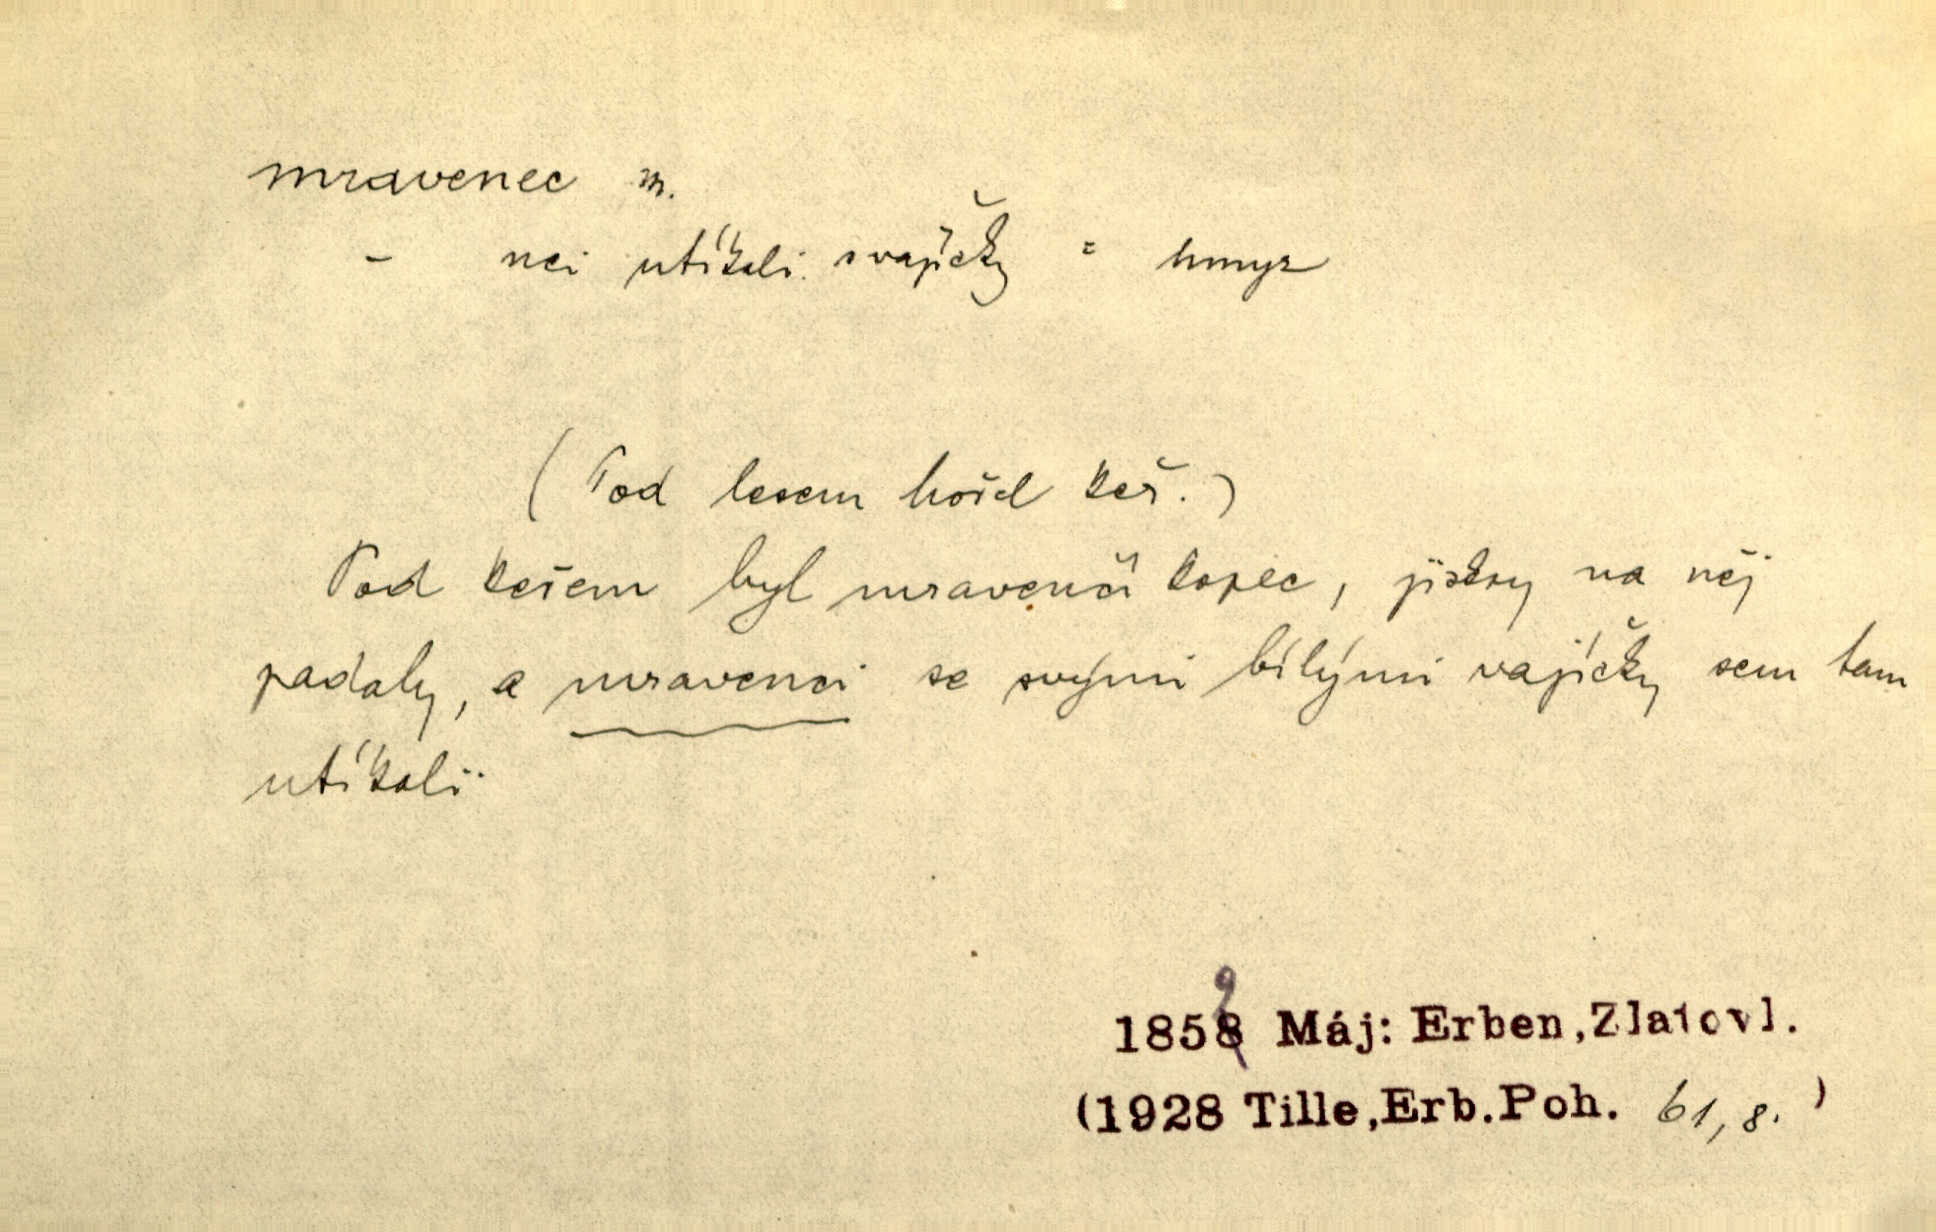 mravenec m.
- nci utíkali s vajíčky = hmyz
(Pod lesem hořel keř.)
Pod keřem byl mravenčí kopec, jiskry na něj
padaly, a mravenci se svými bílými vajíčky sem tam
utíkali.
1859 Máj: Erben,Zlatovl.
(1928 Tille,Erb.Poh. 61, 8. )